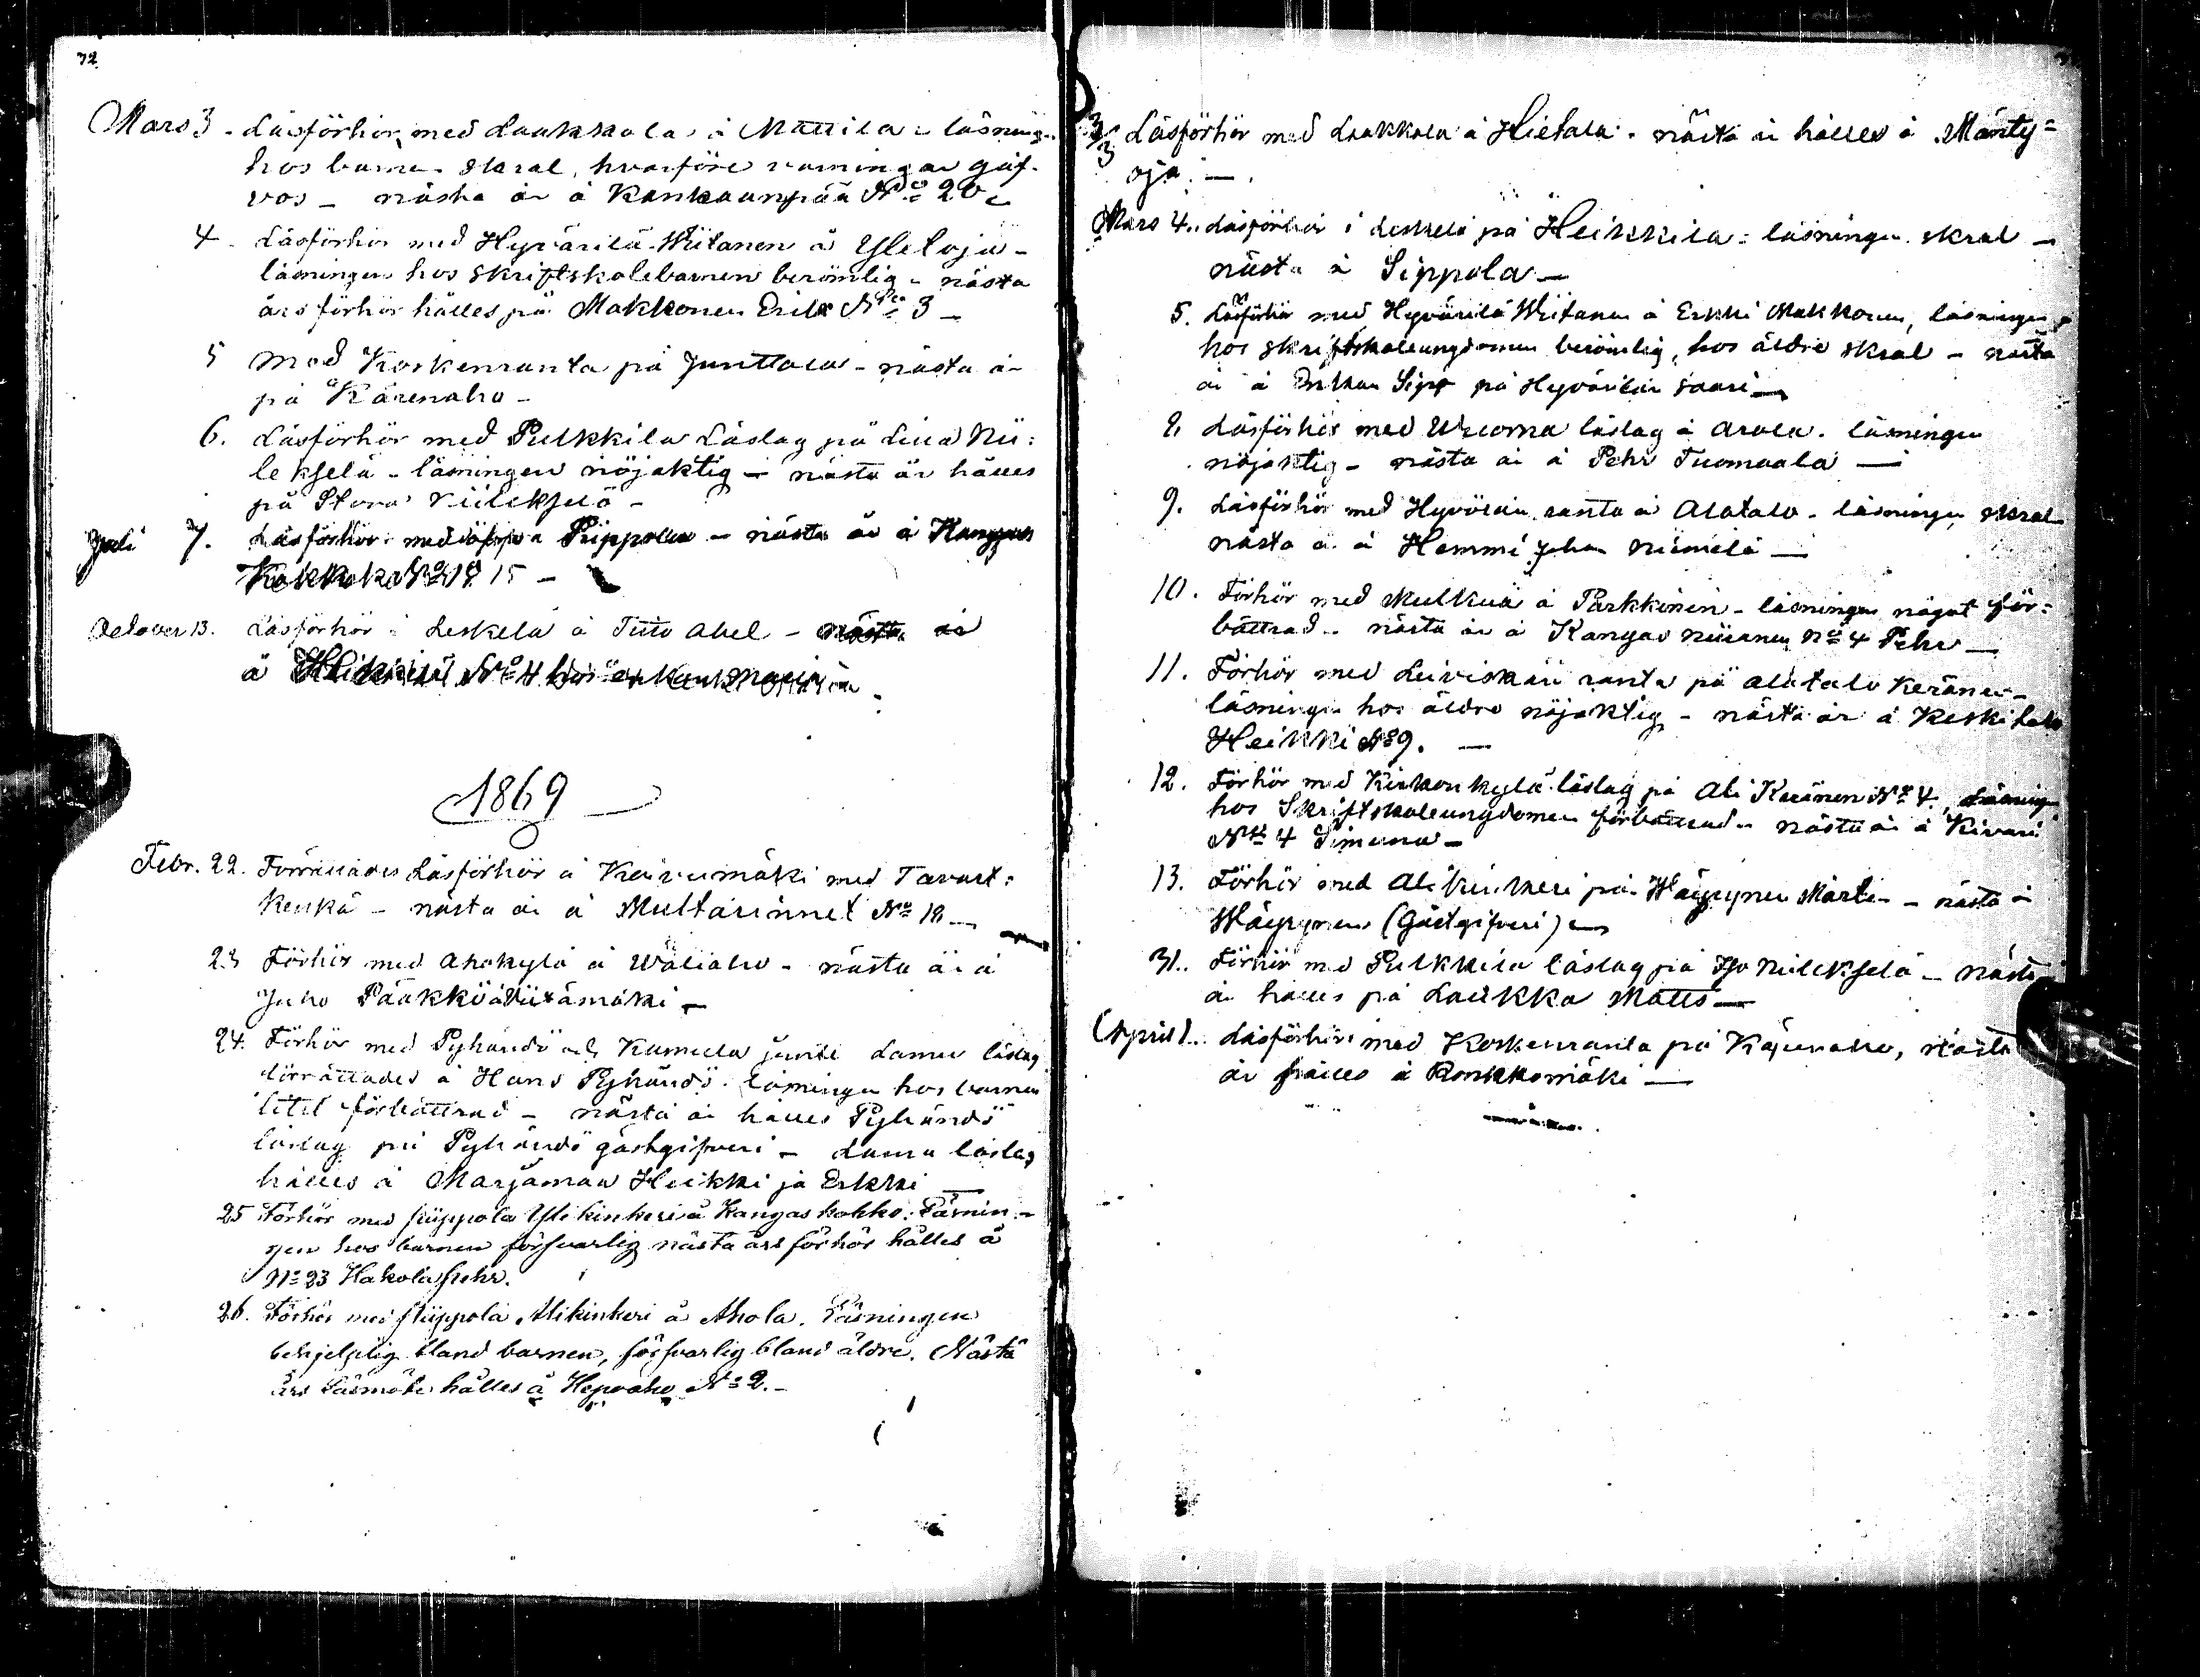 72
Mars 3 - Läsförhör med Laakkola å Mattila - läsning..
hos barnen skral, hvarföre varningar gåf-
vos - nästa år å Kankaanpää No 20 -
4 - Läsförhör med Hyvärilä-Wiitanen å Yletoja -
läsningen hos skriftskolebarnen berömlig - nästa
års förhör hålles på Makkonen Erik No 3 -
5 Med Koskenranta på Junttola - nästa år
på Kärenaho -
6. Läsförhör med Pulkkila Läslag på Lilla Nii-
lekselä - läsningen nöjaktig - nästa år hålles
på Stora Niilekselä -
Juli 7. Läsförhör med Piippola - nästa år å Kangas
Kokko No 15 -
October 13. Läsförhör i Leskelä å Titto Abel - nästa år
å Heikkilä No 4
1869
Febr. 22. Förrättades Läsförhör å Kaivumäki med Tavast-
kenkä - nästa år å Multarinnet No 18 -
23 Förhör med Ahokylä å Wäliaho - nästa år å
Juho Pääkkö å Niiramäki -
24. Förhör med Pyhändö och Kamula jemte Lamu läslag
förrättades å Hans Pyhändö. läsningen hos barnen
litet förbättrad - nästa år hålles Pyhändö
läslag på Pyhändö gästgifveri - Lamu läslag
hålles å Marjaman Heikki ja Erkki
25 Förhör med Piippola Ylikinkeri å Kangas kokko. Läsnin-
gen hos barnen försvarlig nästa års förhör hålles å
No 23 Hakola Pehr.
26. Förhör med Piippola Alikinkeri å Ahola. Läsningen
behjelplig bland barnen, försvarlig bland äldre. Nästa
års Läsmöte hålles å Hepoaho No 2. -
3/3 Läsförhör med Laakkola å Hietala - nästa år hålles å Mänty-
oja. -
Mars 4.. Läsförhör i Leskelä på Heikkilä - läsningen skral -
nästa å Sippola -
5. Läsförhör med Hyvärilä Wiitanen å Erkki Makkonen, läsningen
hos skriftskoleungdomen berömlig, hos äldre skral - nästa
år å Erkkas Sipp på Hyvärilän saari -
8. Läsförhör med Uljua läslag å Arola. läsningen
nöjaktig - nästa år å Pehr Tuomaala -
9. Läsförhör med Hyvölän ranta å Alatalo - läsningen skral
nästa år å Hemmi Johan Niemelä -
10. Förhör med Mulkua å Parkkinen - läsningen något för-
bättrad - nästa år å Kangas Niiranen No 4 Pehr -
11. Förhör med Leiviskän ranta på Alatalo Keränen -
läsningen hos äldre nöjaktig - nästa år å Keskitalo
Heikki No 9. -
12. Förhör med Kirkonkylä läslag på Ali Keränen No 4, Läsningen
hos Skriftskoleungdomen förbättrad - nästa år å Kivari
No 4 Simuna -
13. Förhör med Alikinkeri på Häyrynen Märten - nästa å
Häyrynen (Gästgifveri) -
31.. Förhör med Pulkkila läslag på Iso Niilekselä - nästa
år hålles på Laukka Matts -
April 1.. Läsförhör med Koskenranta på Kärenaho, nästa
år hålles å Konkkomäki -